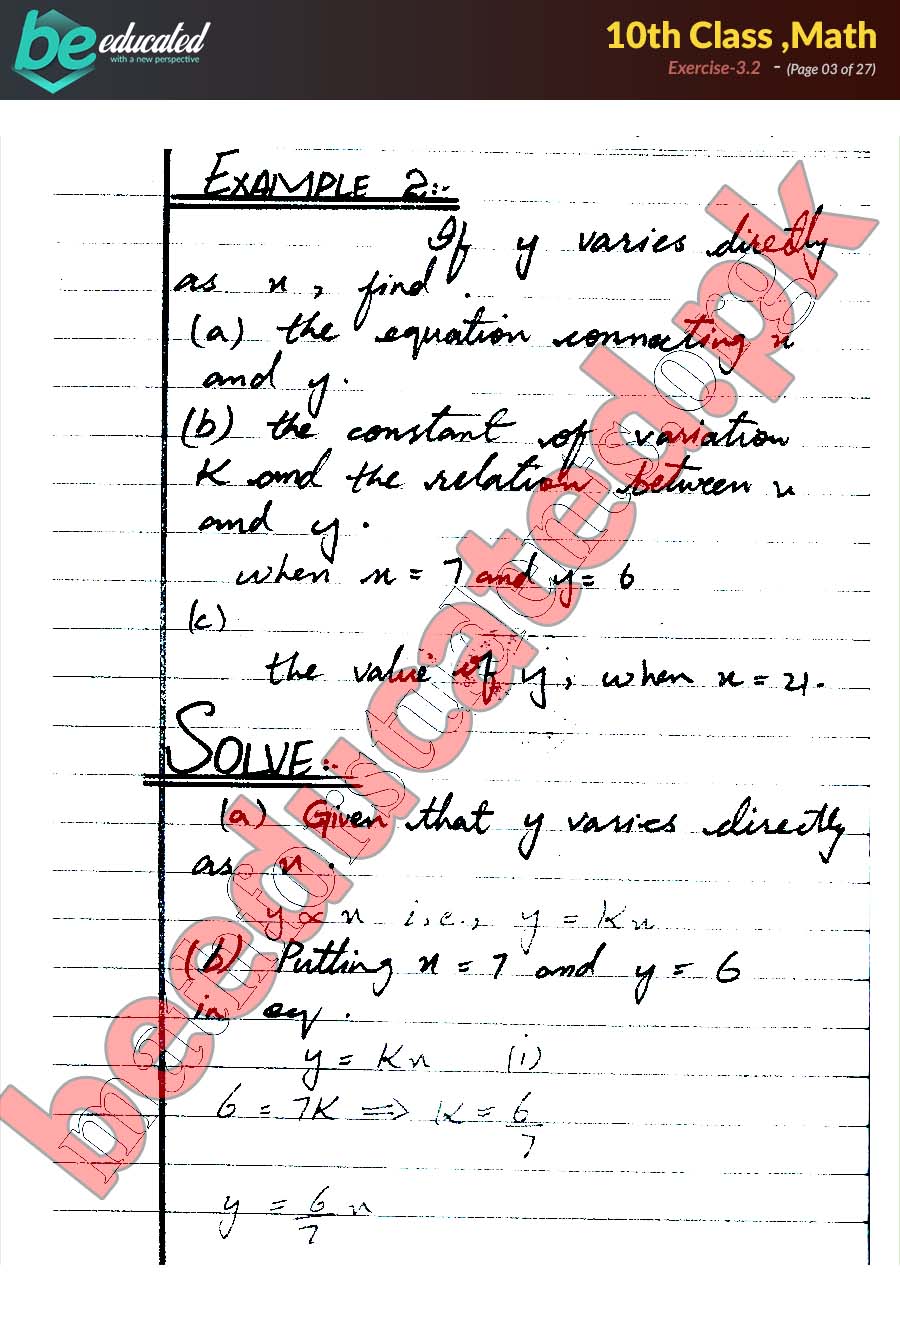 be educated
with a new perspective
10th Class ,Math
Exercise-3.2 - (Page 03 of 27)
EXAMPLE 2:-
If y varies directly
as x, find.
(a) the equation connecting x
and y.
(b) the constant of variation
K and the relation between x
and y.
when x = 7 and y = 6
(c)
the value of y, when x = 21.
SOLVE:-
(a) Given that y varies directly
as x.
y ∝ x i.e., y = Kx
(b) Putting x = 7 and y = 6
in eq.
y = Kx (i)
6 = 7K ⇒ K = 6/7
y = 6/7 x
beeducated.pk